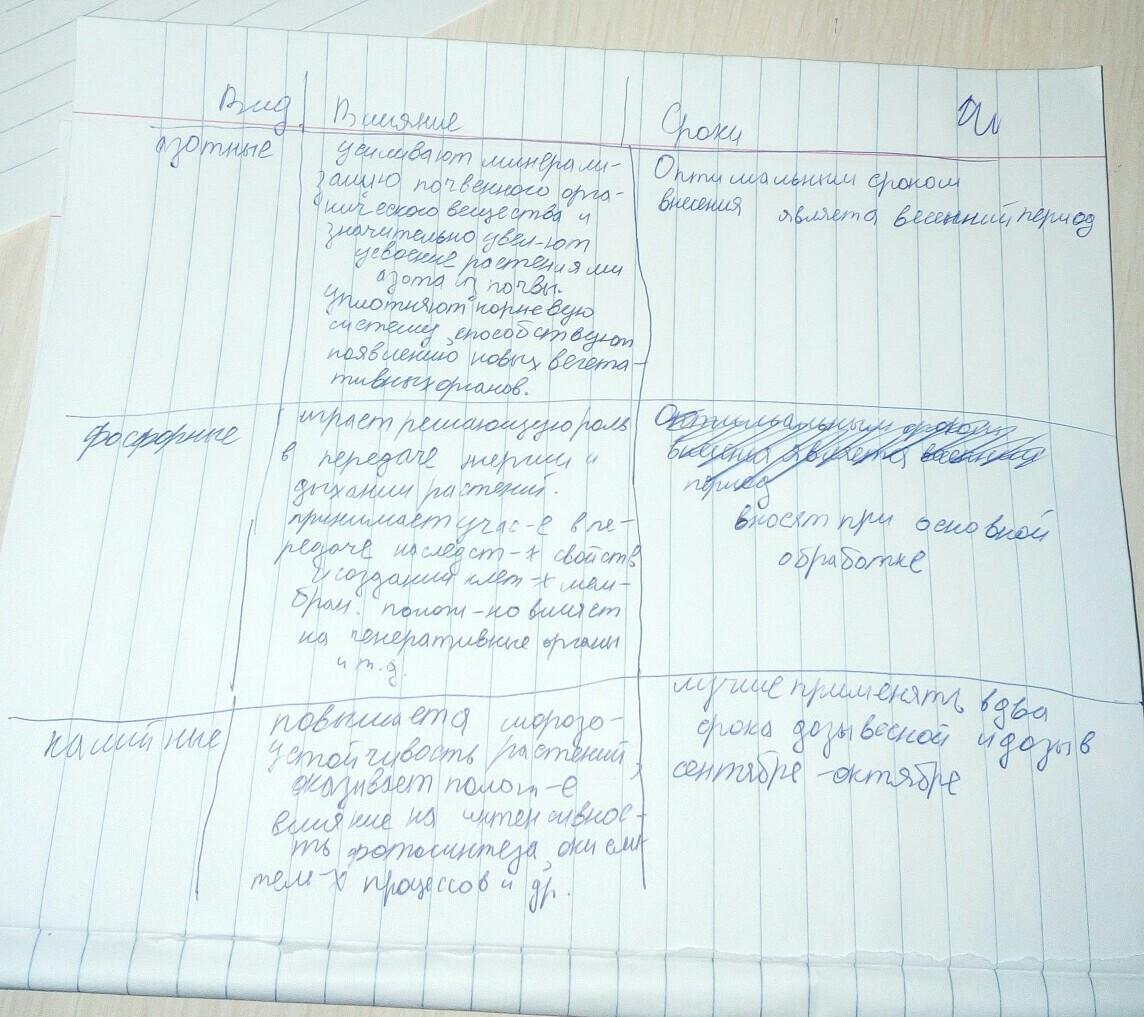 Вид Влияние Сроки
азотные
усиливают минерали-
зацию почвенного орга-
нического вещества и
значительно увел-ют
усвоение растениями
азота из почвы.
уплотняют корневую
систему, способствуют
появлению новых вегета-
тивных органов.
Оптимальным сроком
внесения является весенний период
фосфорные
играет решающую роль
в передаче энергии и
дыхании растений.
принимает учас-е в пе-
редаче наследст-х свойств
и создании клет-х мем-
бран. полож-но влияет
на генеративные органы
и т.д.
Оптимальным сроком
внесения является весенний
период
вносят при основной
обработке
калийные
повышается морозо-
устойчивость растений,
оказывает полож-е
влияние на интенсивнос-
ть фотосинтеза, окисли
тель-х процессов и др.
лучше применять в два
срока дозы весной и дозы в
сентябре - октябре